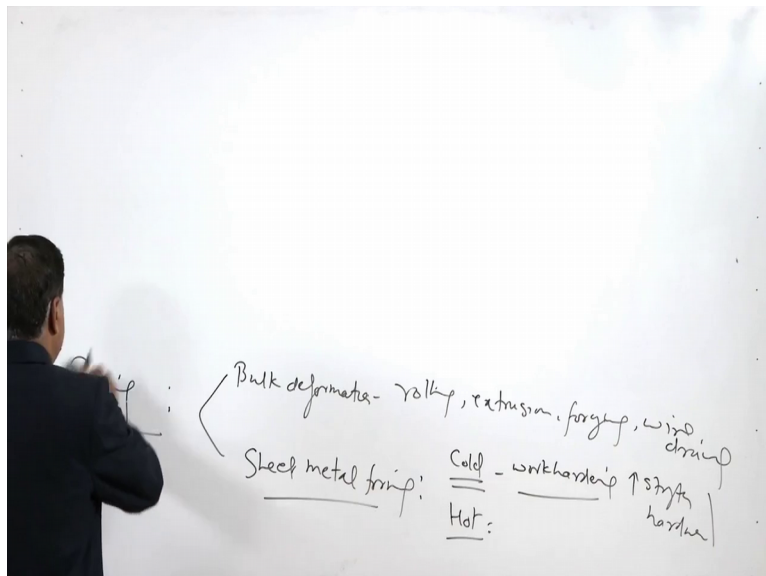 Bulk deformation - rolling, extrusion, forging, wire drawing
Sheet metal forming: Cold - workhardening ↑ strength hardness
Hot: